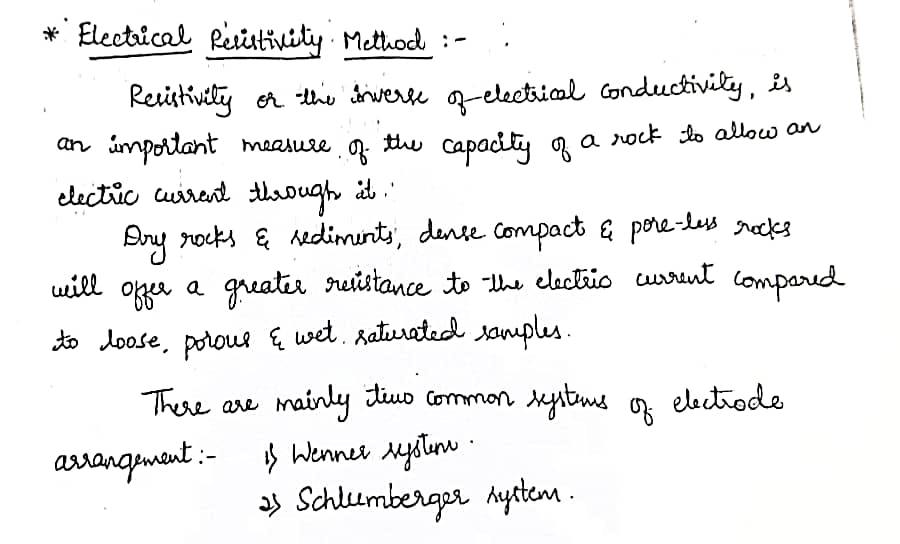 * Electrical Resistivity Method :-
Resistivity or the inverse of electrical conductivity, is
an important measure of the capacity of a rock to allow an
electric current through it.
Dry rocks & sediments, dense compact & pore-less rocks
will offer a greater resistance to the electric current compared
to loose, porous & wet saturated samples.
There are mainly two common systems of electrode
arrangement :- 1) Wenner system.
2) Schlumberger system.